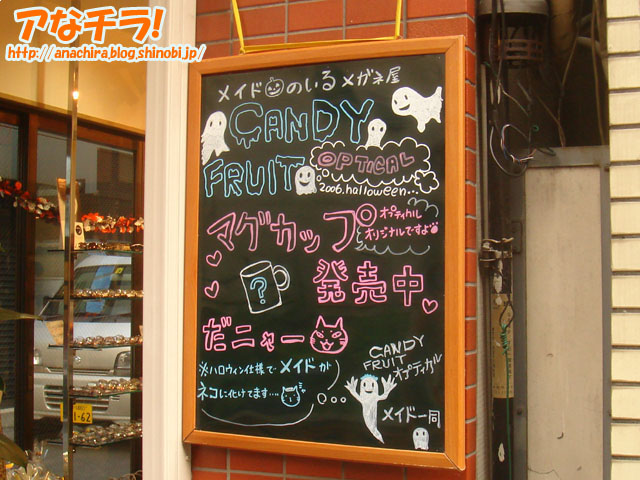 アなチラ!
http://anachira.blog.shinobi.jp/
メイドのいるメガネ屋
CANDY
FRUIT
OPTICAL
2006.halloween...
マグカップ
オプティカル
オリジナルですよ
?
発売中
だニャー
※ハロウィン仕様で メイドが
ネコに化けてます...
CANDY
FRUIT
オプティカル
メイド一同
1-62